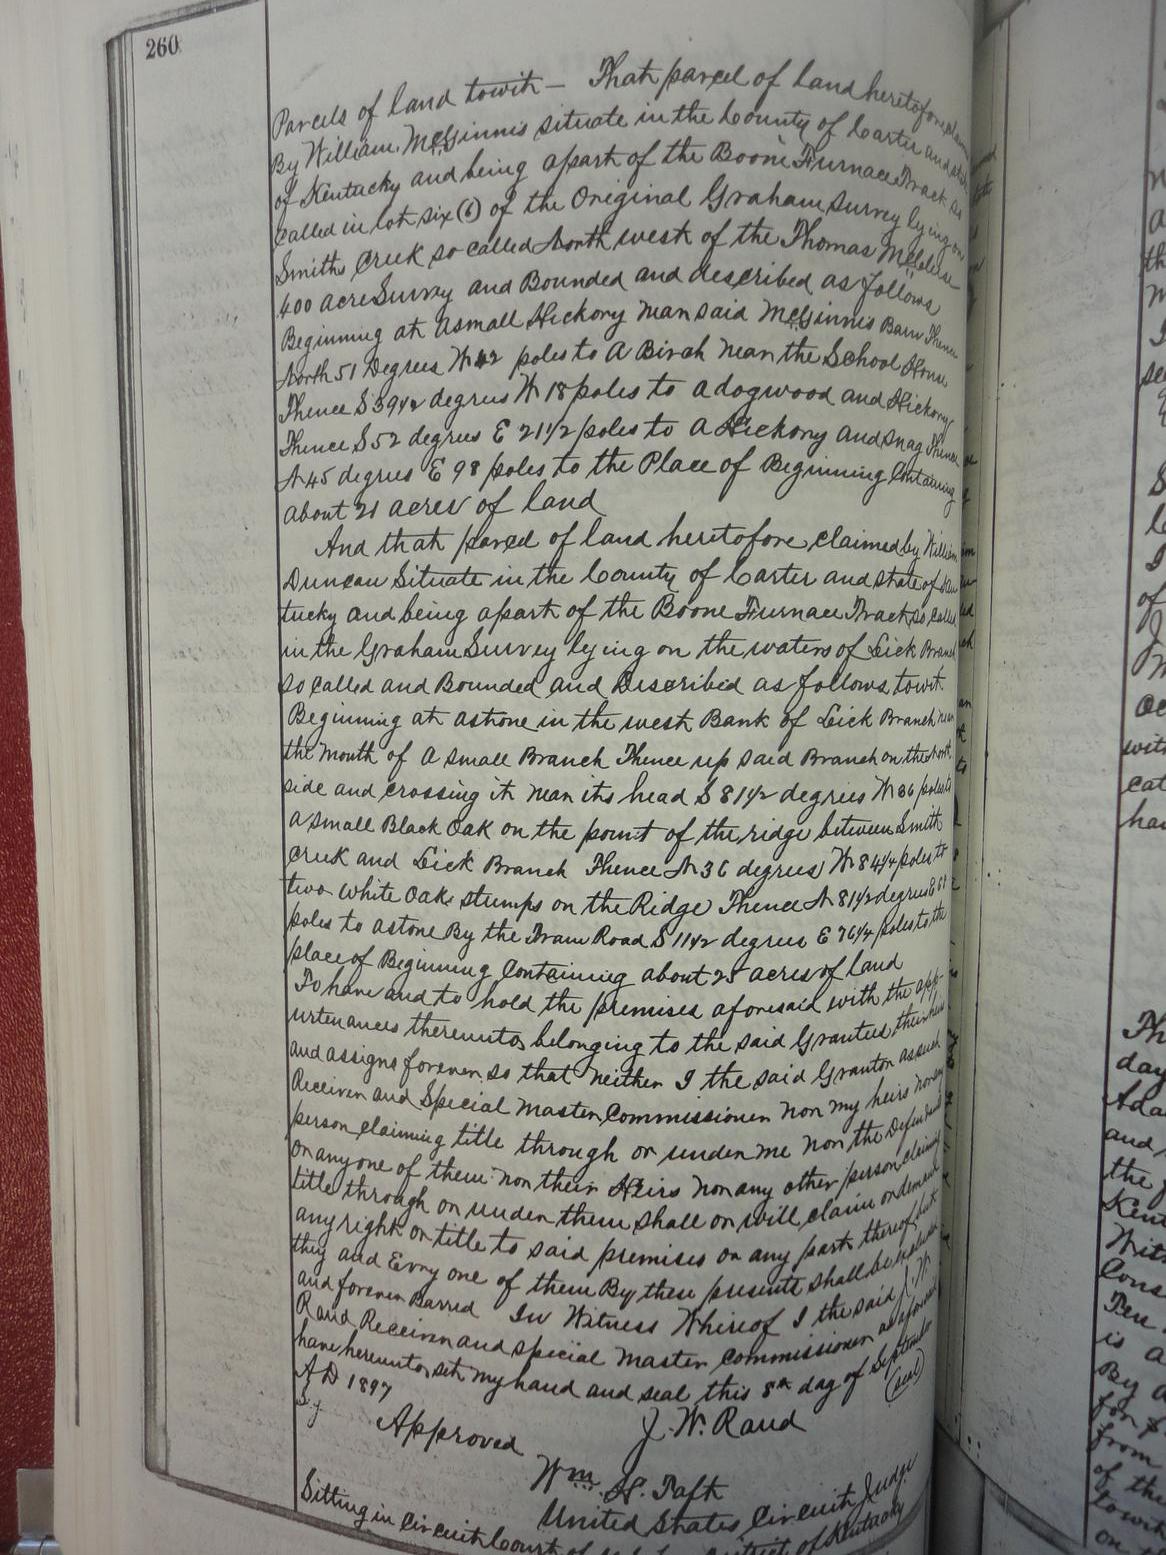 260
Parcels of land towit — That parcel of land heretofore claim
By William McGinnis situate in the County of Carter and state
of Kentucky and being apart of the Boone Furnace Track so
called in lot six (6) of the Original Graham Survey lying on
Smiths Creek so called North west of the Thomas
400 acre Survey and Bounded and described as follows
Beginning at asmall Hickory near said McGinnis Barn Thence
North 51 Degrees W 42 poles to A Birch near the School House
Thence S 39 1/2 degrees W 18 poles to adogwood and Hickory
Thence S 52 degrees E 21 1/2 poles to a Hickory and snag Thence
N 45 degrees E 98 poles to the Place of Beginning Containing
about 21 acres of land
And that parcel of land heretofore claimed by William
Duncan Situate in the County of Carter and state of Ken
tucky and being apart of the Boone Furnace Tract so called
in the Graham Survey lying on the waters of Lick Branch
so called and Bounded and Described as follows towit
Beginning at astone in the west Bank of Lick Branch near
the mouth of a small Branch Thence up said Branch on the North
side and crossing it near its head S 81 1/2 degrees W 36 poles to
a small Black Oak on the point of the ridge between Smith
Creek and Lick Branch Thence N 36 degrees W 84 1/4 poles to
two white Oak stumps on the Ridge Thence N 81 1/2 degrees E 61
poles to astone By the Tram Road S 11 1/2 degrees E 76 1/4 poles to the
place of Beginning Containing about 25 acres of land
To have and to hold the premises aforesaid with the app-
urtenances thereunto belonging to the said Grantees their heirs
and assigns forever so that neither I the said Grantor as such
Receiver and Special Master Commissioner nor my heirs nor any
person claiming title through or under me nor the Defendants
or anyone of them nor their Heirs nor any other person claiming
title through or under them shall or will claim or demand
any right or title to said premises or any part thereof but
they and Evry one of them By these presents shall be excluded
and forever Barred In Witness Whereof I the said J. W.
Rand Receiver and special Master commissioner as aforesaid
have hereunto set my hand and seal this 8th day of September
A D 1897
J. W. Rand (seal)
Approved
Wm. H. Taft
United States Circuit Judge
Sitting in Circuit Court of District of Kentucky